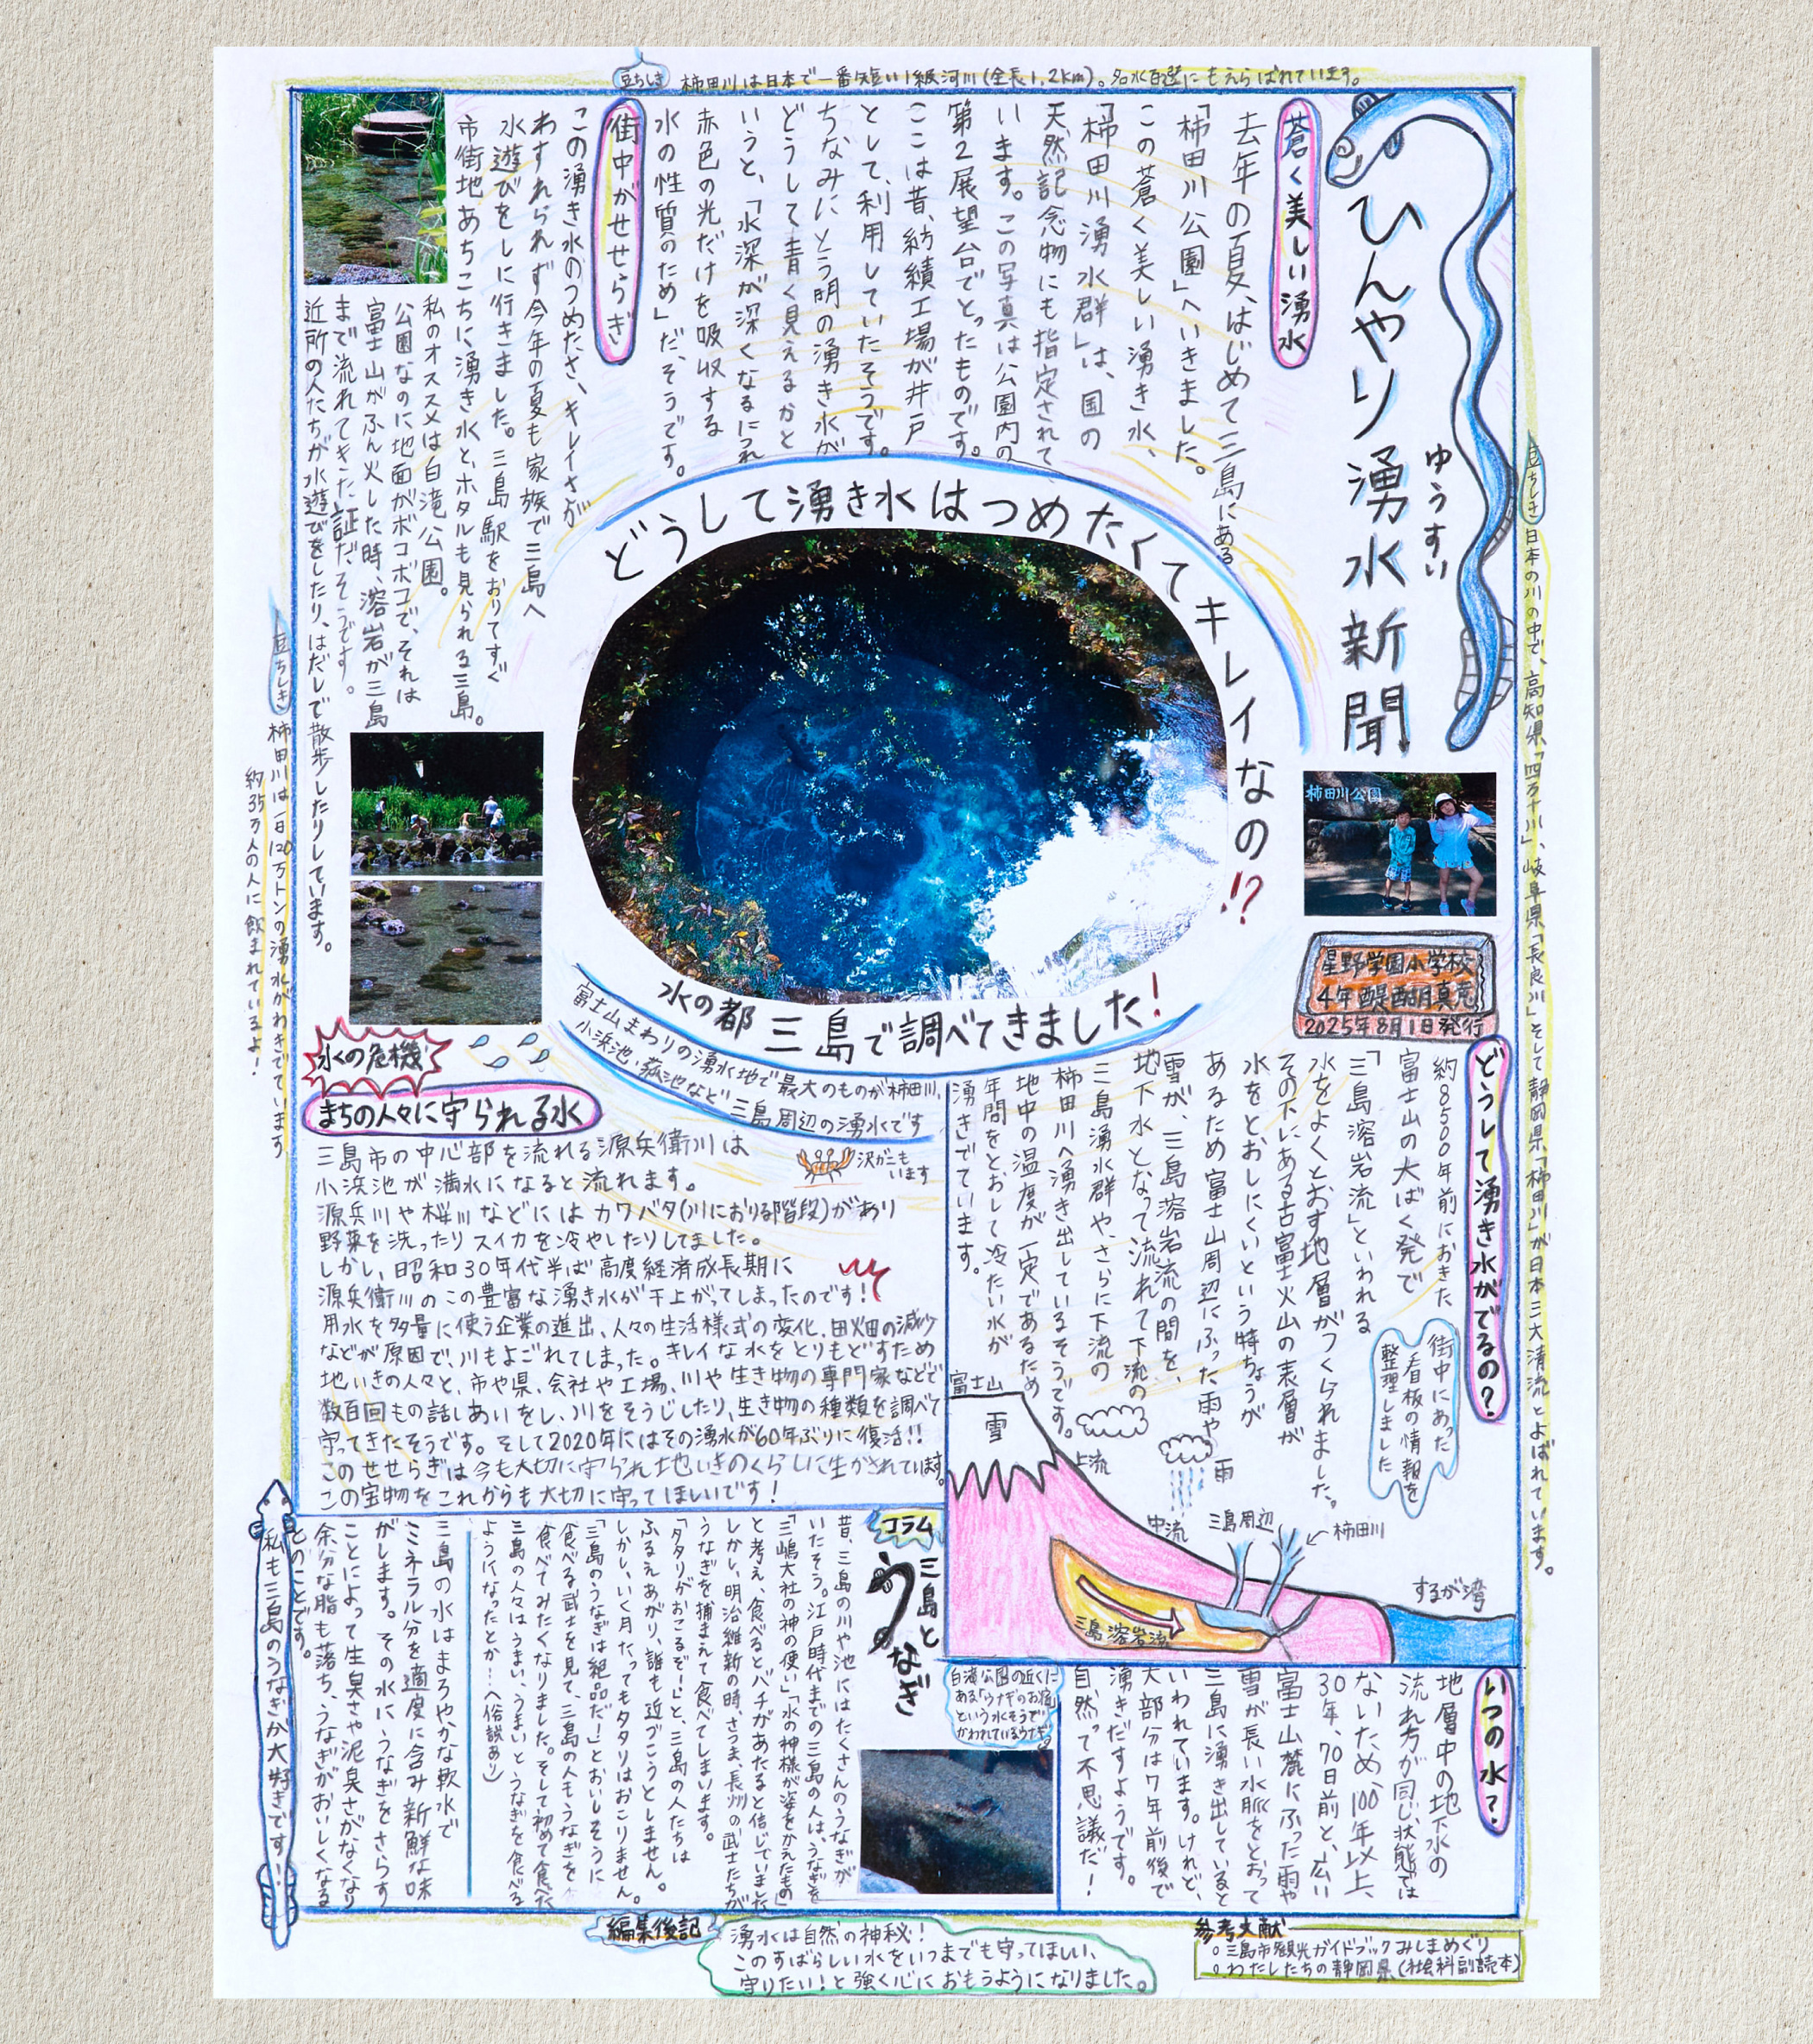 豆ちしき 柿田川は日本で一番短い1級河川(全長1.2km)。名水百選にもえらばれています。
ひんやり湧水新聞
ゆうすい
柿田川公園
星野学園小学校
4年 醍醐真堯
2025年8月1日発行
蒼く美しい湧水
去年の夏、はじめて三島にある
「柿田川公園」へいきました。
この蒼く美しい湧き水、
「柿田川湧水群」は、国の
天然記念物にも指定されて
います。この写真は公園内の
第2展望台でとったものです。
ここは昔、紡績工場が井戸
として、利用していたそうです。
ちなみにとう明の湧き水が
どうして青く見えるかと
いうと、「水深が深くなるにつれ
赤色の光だけを吸収する
水の性質のため」だ、そうです。
街中がせせらぎ
この湧き水のつめたさ、キレイさが
わすれられず今年の夏も家族で三島へ
水遊びをしに行きました。三島駅をおりてすぐ
市街地あちこちに湧き水と、ホタルも見られる三島。
私のオススメは白滝公園。
公園なのに地面がボコボコで、それは
富士山がふん火した時、溶岩が三島
まで流れてきた証だ、そうです。
近所の人たちが水遊びをしたり、はだしで散歩したりしています。
どうして湧き水はつめたくてキレイなの!?
水の都 三島で調べてきました!
富士山まわりの湧水地で最大のものが柿田川、
小浜池、菰池など三島周辺の湧水です
豆ちしき 日本の川の中で、高知県「四万十川」、岐阜県「長良川」そして静岡県「柿田川」が日本三大清流とよばれています。
豆ちしき 柿田川は一日120万トンの湧水がわきでています
約35万人の人に飲まれているよ!
どうして湧き水がでるの?
約8500年前におきた
富士山の大ばく発で
「三島溶岩流」といわれる
水をよくとおす地層がつくられました。
その下にある古富士火山の表層が
水をとおしにくいという特ちょうが
あるため富士山周辺にふった雨や
雪が、三島溶岩流の間を、
地下水となって流れて下流の
三島湧水群や、さらに下流の
柿田川へ湧き出しているそうです。
地中の温度が一定であるため
年間をとおして冷たい水が
湧きでています。
街中にあった
看板の情報を
整理しました
富士山
雪
上流
雨
中流
三島周辺
柿田川
するが湾
三島溶岩流
水の危機
まちの人々に守られる水
沢がにも
います
三島市の中心部を流れる源兵衛川は
小浜池が満水になると流れます。
源兵川や桜川などにはカワバタ(川におりる階段)があり
野菜を洗ったりスイカを冷やしたりしてました。
しかし、昭和30年代半ば高度経済成長期に
源兵衛川のこの豊富な湧き水が干上がってしまったのです!
用水を多量に使う企業の進出、人々の生活様式の変化、田畑の減少
などが原因で、川もよごれてしまった。キレイな水をとりもどすため
地いきの人々と、市や県、会社や工場、川や生き物の専門家などで
数百回もの話しあいをし、川をそうじしたり、生き物の種類を調べて
守ってきたそうです。そして2020年にはその湧水が60年ぶりに復活!!
このせせらぎは今も大切に守られ地いきのくらしに生かされています。
この宝物をこれからも大切に守ってほしいです!
いつの水?
地層中の地下水の
流れ方が同じ状態では
ないため、100年以上、
30年、70日前と、広い
富士山麓にふった雨や
雪が長い水脈をとおって
三島に湧き出していると
いわれています。けれど、
大部分は7年前後で
湧きだすようです。
自然って不思議だ!
コラム
三島とうなぎ
白滝公園の近くに
ある「ウナギのお宿」
という水そうで
かわれているウナギ
昔、三島の川や池にはたくさんのうなぎが
いたそう。江戸時代までの三島の人は、うなぎを
「三嶋大社の神の使い」「水の神様が姿をかえたもの」
と考え、食べるとバチがあたると信じていました
しかし、明治維新の時、さつま、長州の武士たちが
うなぎを捕まえて食べてしまいます。
「タタリがおこるぞ!」と、三島の人たちは
ふるえあがり、誰も近づこうとしません。
しかし、いく月たってもタタリはおこりません。
「三島のうなぎは絶品だ!」とおいしそうに
食べる武士を見て、三島の人もうなぎを
食べてみたくなりました。そして初めて食べた
三島の人々はうまい、うまいとうなぎを食べる
ようになったとか…(俗説あり)
三島の水はまろやかな軟水で
ミネラル分を適度に含み新鮮な味
がします。その水にうなぎをさらす
ことによって生臭さや泥臭さがなくなり
余分な脂も落ち、うなぎがおいしくなる
とのことです。
私も三島のうなぎが大好きです!
編集後記
湧水は自然の神秘!
このすばらしい水をいつまでも守ってほしい、
守りたい!と強く心におもうようになりました。
参考文献
。三島市観光ガイドブックみしまめぐり
。わたしたちの静岡県(社会科副読本)